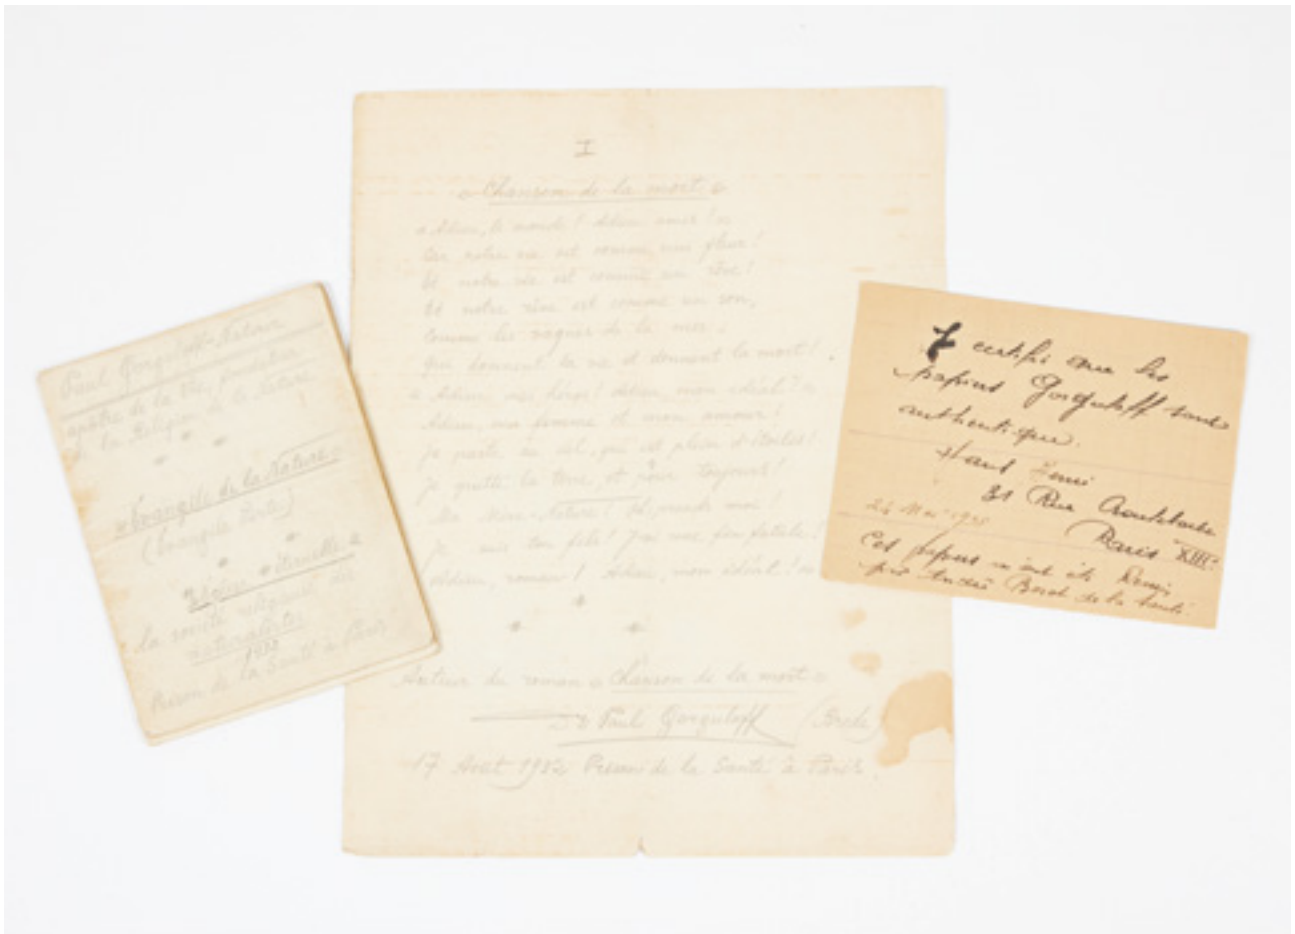 Paul Gorguloff-Natan
apôtre de la vie,
la Religion de la Nature
« Evangile de la Nature »
(Evangile Verte)
Edition éternelle
la société religieuse de
naturalistes
1932
Prison de la Santé à Paris
I
« Chanson de la mort »
« Adieu, le monde! Adieu
Car notre vie est comme une fleur!
Et notre vie est comme un rêve!
Et notre rêve est comme un son,
Comme les vagues de la mer
qui donnent la vie et donnent la mort!
« Adieu, mon idéal!
Adieu, ma femme et mon amour!
Je parte au ciel, qui est plein d'étoiles!
Je quitte la terre, et pour toujours!
Ma Mère-Nature! prends moi!
Je suis ton fils! J'ai une fin fatale!
Adieu, Adieu, mon idéal! »
Auteur du roman « Chanson de la mort »
Dr Paul Gorguloff
17 Août 1932 Prison de la Santé à Paris
certifie que les
papiers Gorguloff sont
authentique.
31 Rue
Paris XIII
24 Mai
Ces papiers m'ont été Remis
par André de la Santé